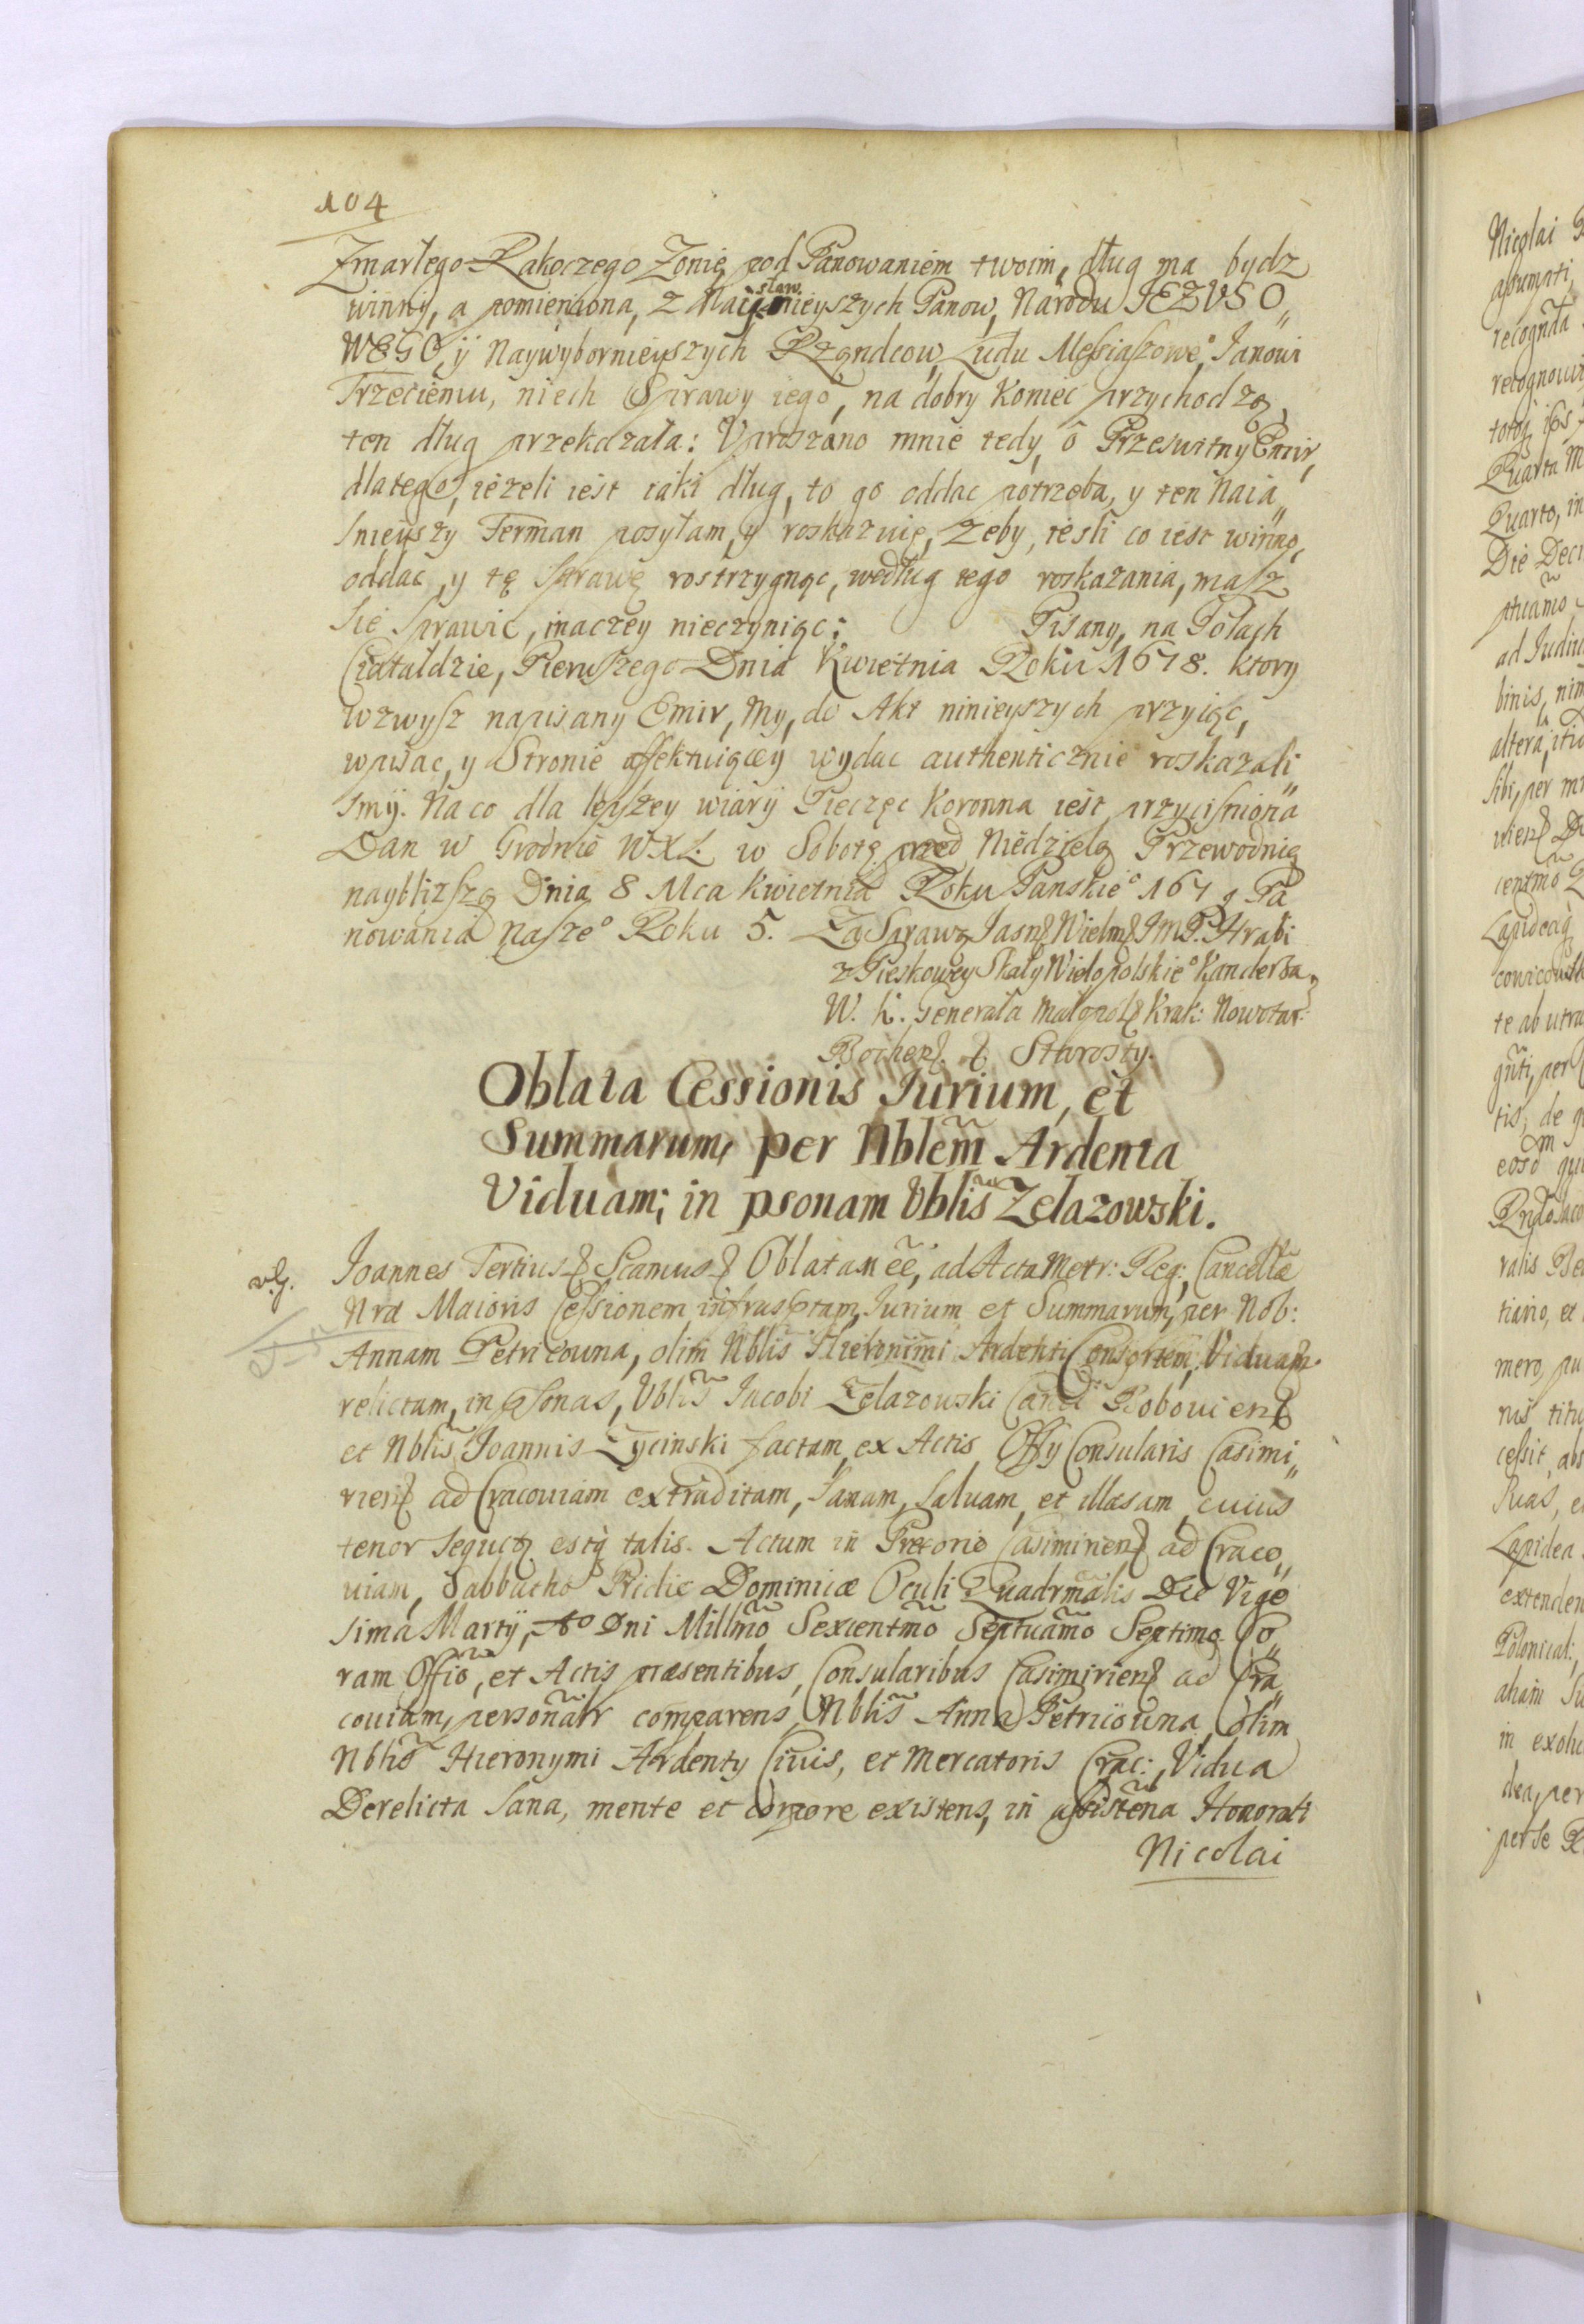 104
Zmarłego Rakoczego Zonie pod Panowaniem twoim, dług ma bydz
winny, a pomieniona, z Nayslawnieyszych Panow, Narodu JEZUSO„
WEGO, ÿ Naywybornieyszych Rządcow, Ludu Messiaszowe° Janowi
Trzeciemu, niech Sprawy iego, na dobry Koniec przychodzą,
ten dług przekazała: Uproszono mnie tedy, o Przeswitny Emir,
dlatego, iezeli iest iaki dług, to go oddac potrzeba, y ten Naia„
snieyszy Ferman posyłam, y roskazuię, zeby, iesli co iest winno,
oddac, y tę Sprawę rostrzygnąc, według tego roskazania, masz
sie Sprawic, inaczey nieczyniąc: Pisany, na Polach
Czataldzie, Pierwszego Dnia Kwietnia Roku 1678. ktory
wzwysz napisany Emir, My, do Akt ninieyszych przyiąc,
wpisac, y Stronie affektuiącey wydac authenticznie roskazali„
smÿ. Na co dla lepszey wiarÿ Pieczęc Koronna iest przycisniona
Dan w Grodnie WXL. w Sobotę przed Niedzielą Przewodnią
nayblizszą Dnia 8 Mca Kwietnia Roku Panskie° 1679 Pa„
nowania Nasze° Roku 5. Za Sprawą Jasnę Wielmę JMP. Hrabi
z Pieskowey Skały Wielopolskie° Kanclerza
W. K. Generała Małopolę Krak: Nowotar:
Bochenę. ę. Starosty.
Oblata Cessionis Iurium, et
Summarum, per Nblem̃ Ardenta
Viduam; in psonam Nblis̃ Zelazowski.
vG.
Ioannes Tertius ę Scamus ę Oblatam eẽ, ad Acta Metr: Reg: Cancellæ
Nræ Maioris Cessionem infrasptam, Iurium et Summarum, per Nob:
Annam Petricouna, olim Nblis̃ Hieronimi Ardenti Consortem, Viduam
relictam, in psonas, Nblis̃ Iacobi Zelazowski Canci Bobovienę
et Nblis̃ Joannis Zycinski factam, ex Actis Offy Consularis Casimi„
rienę ad Cracouiam extraditam, Sanam, Saluam, et illæsam, cuius
tenor sequitę estq̃ talis. Actum in Pretorio Casimirienę ad Craco„
uiam, Sabbatho Pridie Dominicæ Oculi Quadrmalis̃ Die Vige„
sima Martÿ, Ao Dni Millmõ Sexcentmõ Septuamõ Septimo. Co„
ram Offio, et Actis præsentibus, Consularibus Casimirienę ad Cra„
couiam, personalr̃ comparens, Nblis̃ Anna Petricouna, olim
Nblis̃ Hieronymi Ardenty Civis, et Mercatoris Crac: Vidua
Derelicta Sana, mente et corpore existens, in assistena Honorati
Nicolai